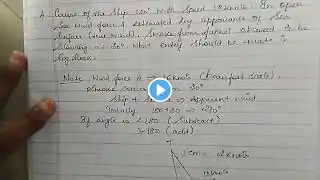 A Course of the Ship 240° with Speed 12 knots. In open
Sea wind force 4 estimated by appearance of Sea
Surface (true wind). Smoke from funnel observed to be
blowing 030°. What entry should be made in
log book.
Note Wind force 4 → 16 knots (Beaufort Scale).
Smoke 30°
Ship + → Apparent Wind
Totally 180+30 → 210°
If degree is < 180 (Subtract)
> 180 (add)
T
1 cm = 2 knots
12 knots